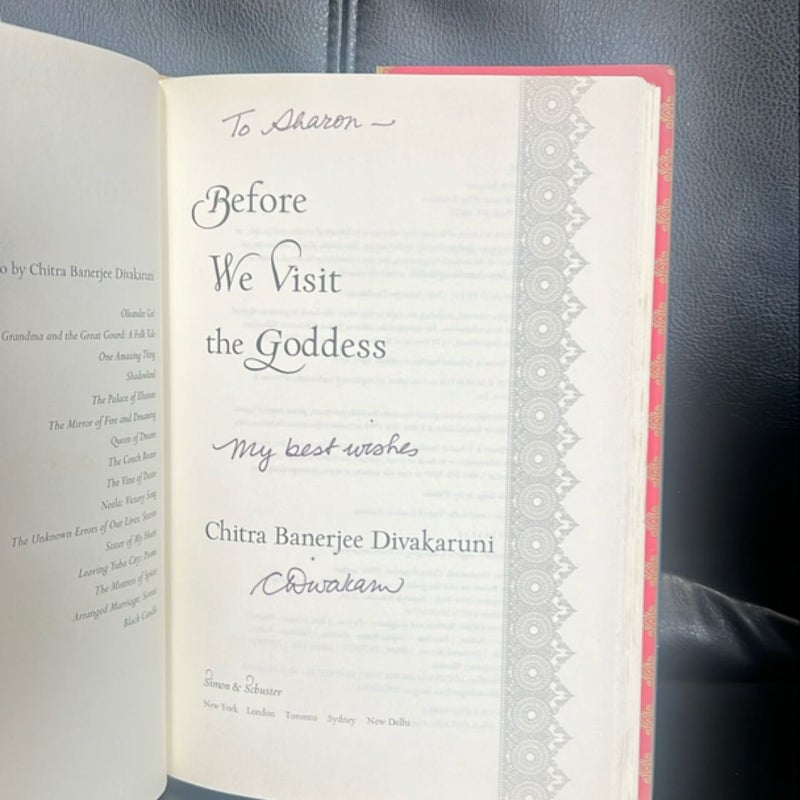 o by Chitra Banerjee Divakaruni
Oleander Girl
Grandma and the Great Gourd: A Folk Tale
One Amazing Thing
Shadowland
The Palace of Illusions
The Mirror of Fire and Dreaming
Queen of Dreams
The Conch Bearer
The Vine of Desire
Neela: Victory Song
The Unknown Errors of Our Lives: Stories
Sister of My Heart
Leaving Yuba City: Poems
The Mistress of Spices
Arranged Marriage: Stories
Black Candle
To Sharon —
Before
We Visit
the Goddess
My best wishes
Chitra Banerjee Divakaruni
CDivakaruni
Simon & Schuster
New York London Toronto Sydney New Delhi